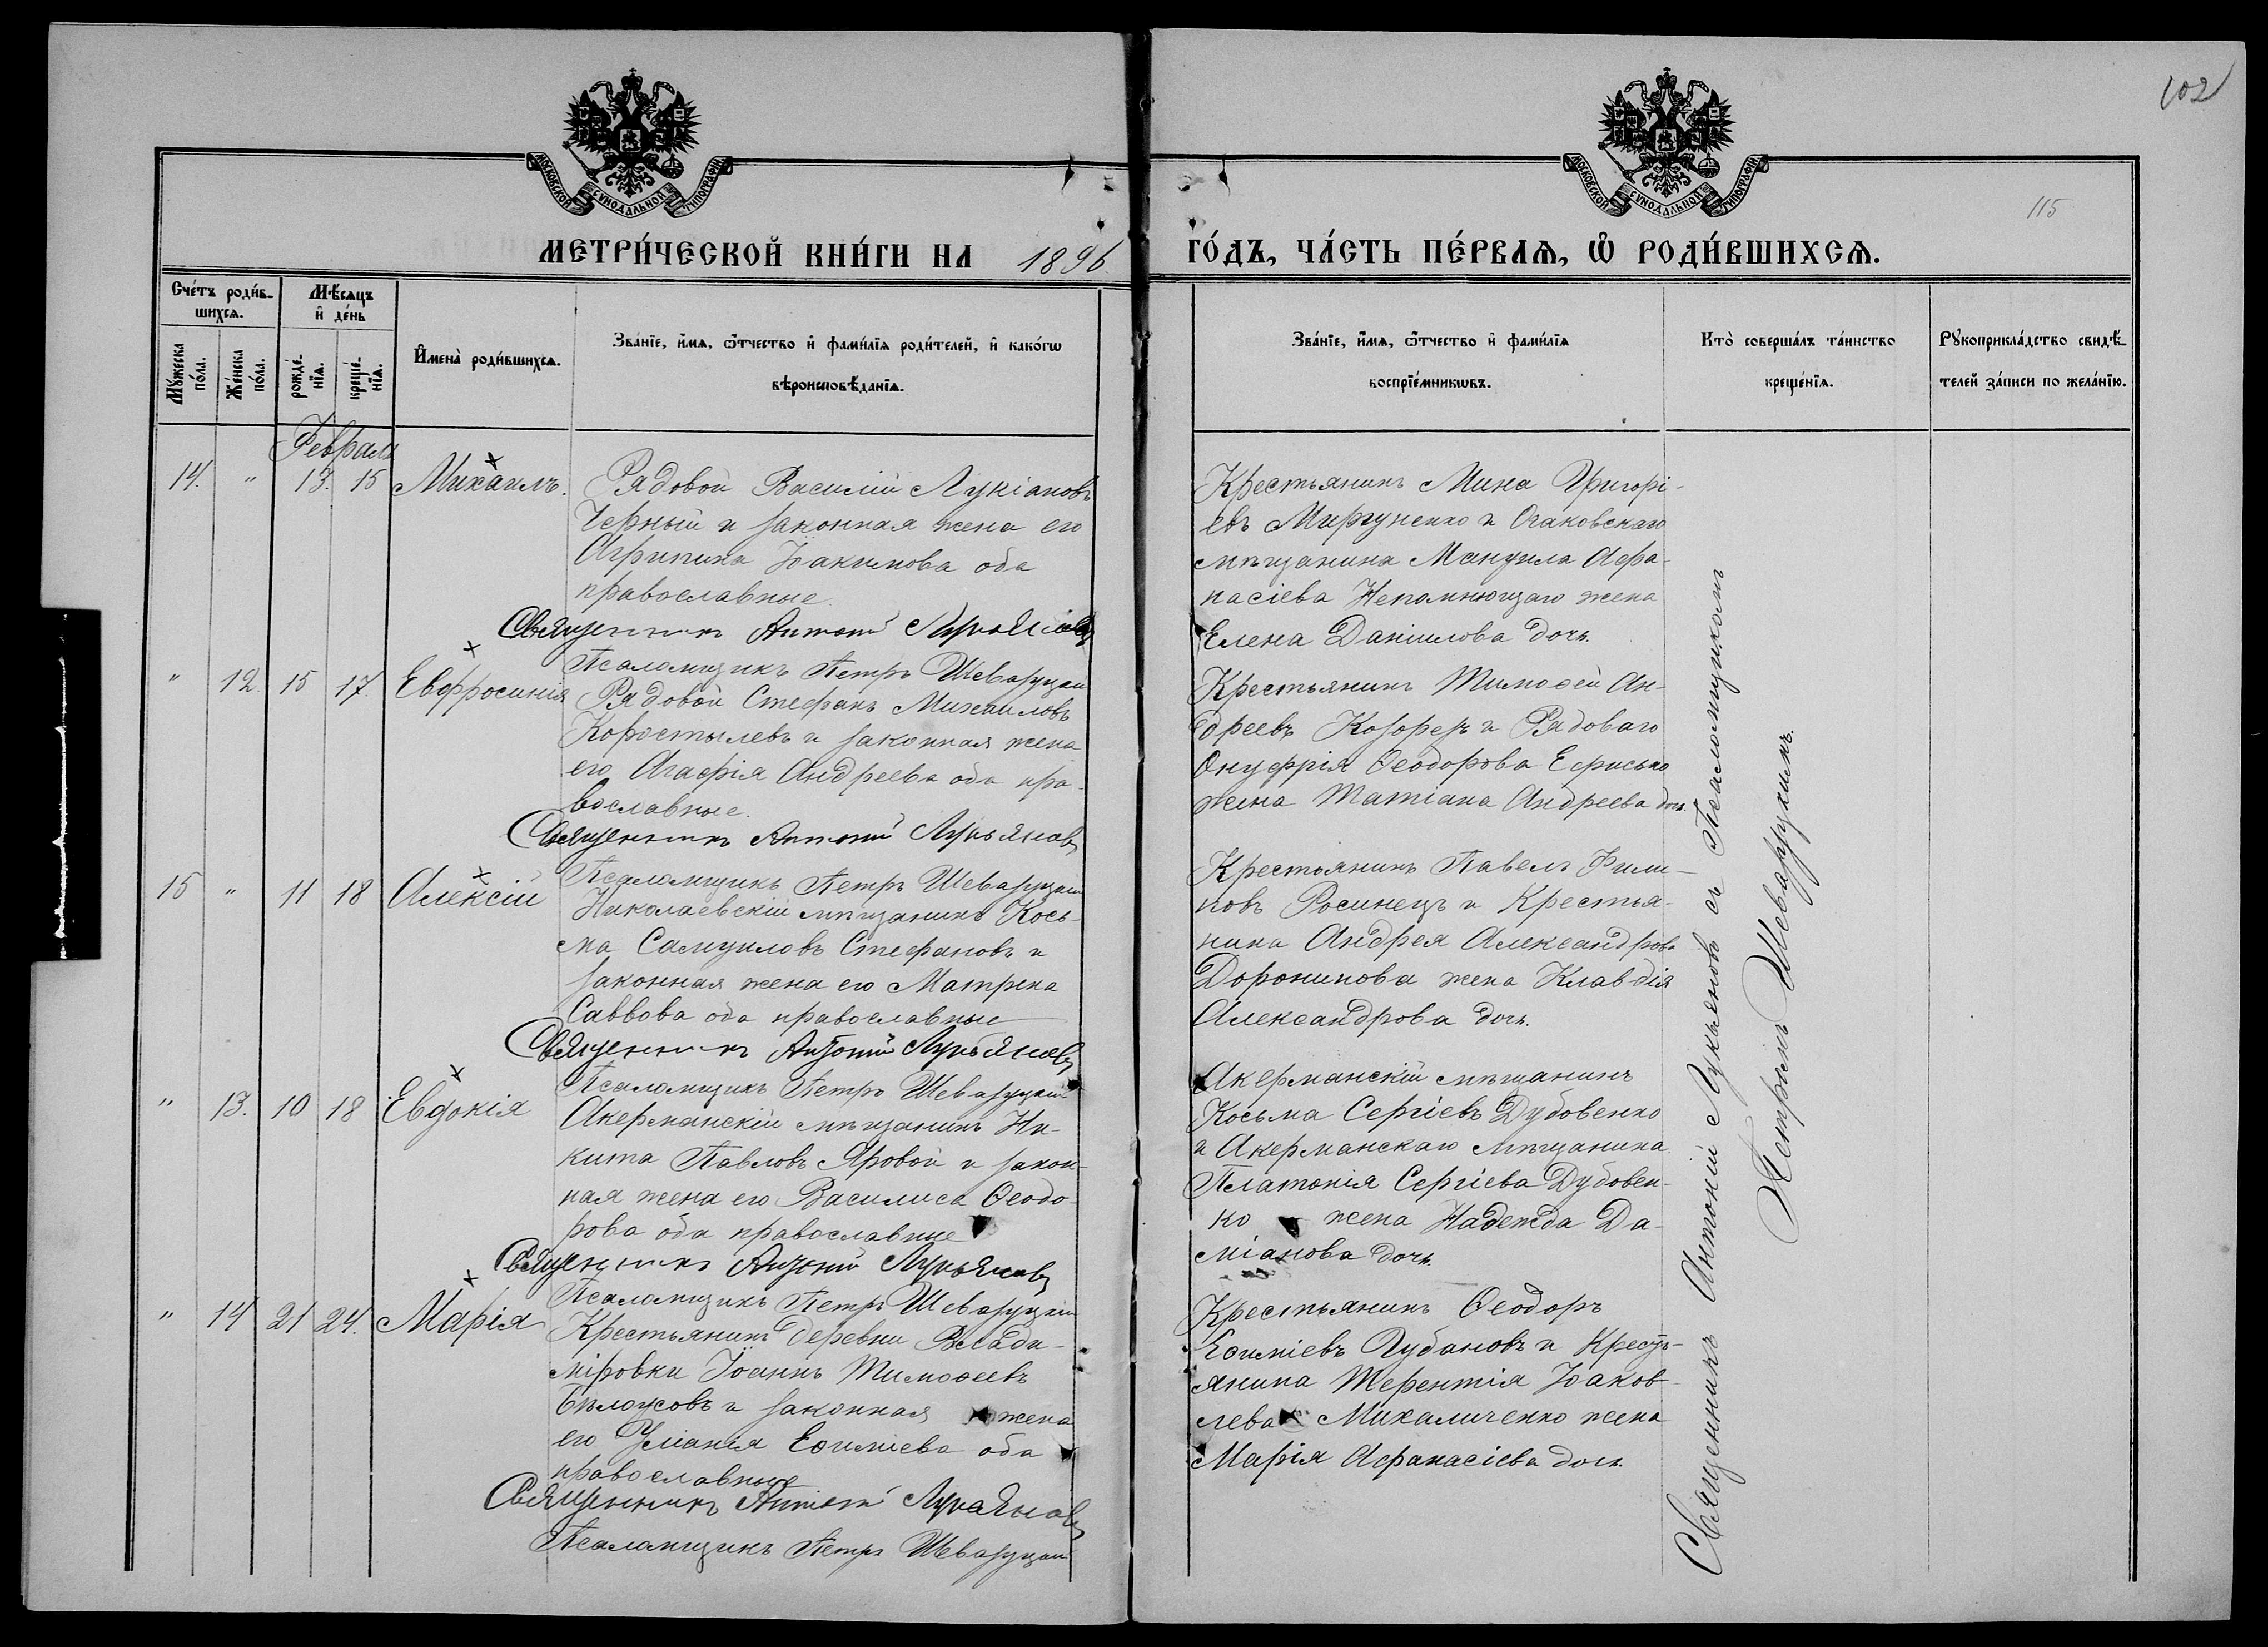 102
115
МОСКОВСКОЙ СѴНОДАЛЬНОЙ ТИПОГРАФІИ
МОСКОВСКОЙ СѴНОДАЛЬНОЙ ТИПОГРАФІИ
МЕТРИ́ЧЕСКОЙ КНИ́ГИ НА 1896. ГО́ДЪ, ЧА́СТЬ ПЕ́РВАѦ, Ѡ҆ РОДИ́ВШИХСѦ.
Сче́тъ роди́в-
шихсѧ.
Мѣ́сѧцъ
и҆ де́нь
Мꙋ́жеска по́ла.
Же́нска по́ла.
рожде́-нїѧ.
креще́-нїѧ.
И҆мена̀ роди́вшихсѧ.
Зва́нїе, и҆́мѧ, ѻ҆́тчество и҆ фами́лїѧ роди́телей, и҆ како́гѡ
вѣроисповѣ́данїѧ.
Зва́нїе, и҆́мѧ, ѻ҆́тчество и҆ фами́лїѧ
воспрїе́мникѡвъ.
Кто̀ соверша́лъ та́инство
креще́нїѧ.
Рꙋкоприкла́дство свидѣ́-
телей за́писи по жела́нїю.
Февраль
14. " 13. 15 Михаилъ.
Рядовой Василій Лукіановъ
Черный и законная жена его
Агрипина Іоакимова оба
православные
Священникъ Антоній Лукьяновъ
Псаломщикъ Петръ Шеваруцкій
Крестьянинъ Мина Григорі-
евъ Миргуненко и Очаковскаго
мѣщанина Мануила Афа-
насіева Непомнющаго жена
Елена Даніилова дочь.
" 12. 15 17. Евфросинія
Рядовой Стефанъ Михаиловъ
Коростылевъ и законная жена
его Агафія Андреева оба пра-
вославные.
Священникъ Антоній Лукьяновъ
Псаломщикъ Петръ Шеваруцкій
Крестьянинъ Тимоѳей Ан-
дреевъ Козорезъ и Рядоваго
Онуфрія Ѳеодорова Ефисько
жена Татіана Андреева дочь.
15 " 11 18 Алексій
Николаевскій мѣщанинъ Кось-
ма Самуиловъ Стефановъ и
законная жена его Матрена
Саввова оба православные
Священникъ Антоній Лукьяновъ
Псаломщикъ Петръ Шеваруцкій
Крестьянинъ Павелъ Фили-
повъ Росинецъ и Крестья-
нина Андрея Александрова
Доронинова жена Клавдія
Александрова дочь.
" 13. 10 18 Евдокія
Акерманскій мѣщанинъ Ни-
кита Павловъ Яровой и закон-
ная жена его Василиса Ѳеодо-
рова оба православные
Священникъ Антоній Лукьяновъ
Псаломщикъ Петръ Шеваруцкій
Акерманскій мѣщанинъ
Косьма Сергіевъ Дубовенко
и Акерманскаго мѣщанина
Платонія Сергіева Дубовен-
ко жена Надежда Да-
міанова дочь.
" 14 21 24. Марія
Крестьянинъ деревни Влади-
міровки Іоаннъ Тимоѳеевъ
Бѣлоусовъ и законная жена
его Уліанія Евѳиміева оба
православные
Священникъ Антоній Лукьяновъ
Псаломщикъ Петръ Шеваруцкій
Крестьянинъ Ѳеодоръ
Еѳиміевъ Губановъ и Кресть-
янина Терентія Іаков-
лева Михаличенко жена
Марія Афанасіева дочь.
Священникъ Антоній Лукьяновъ съ Псаломщикомъ
Петромъ Шеваруцкимъ.